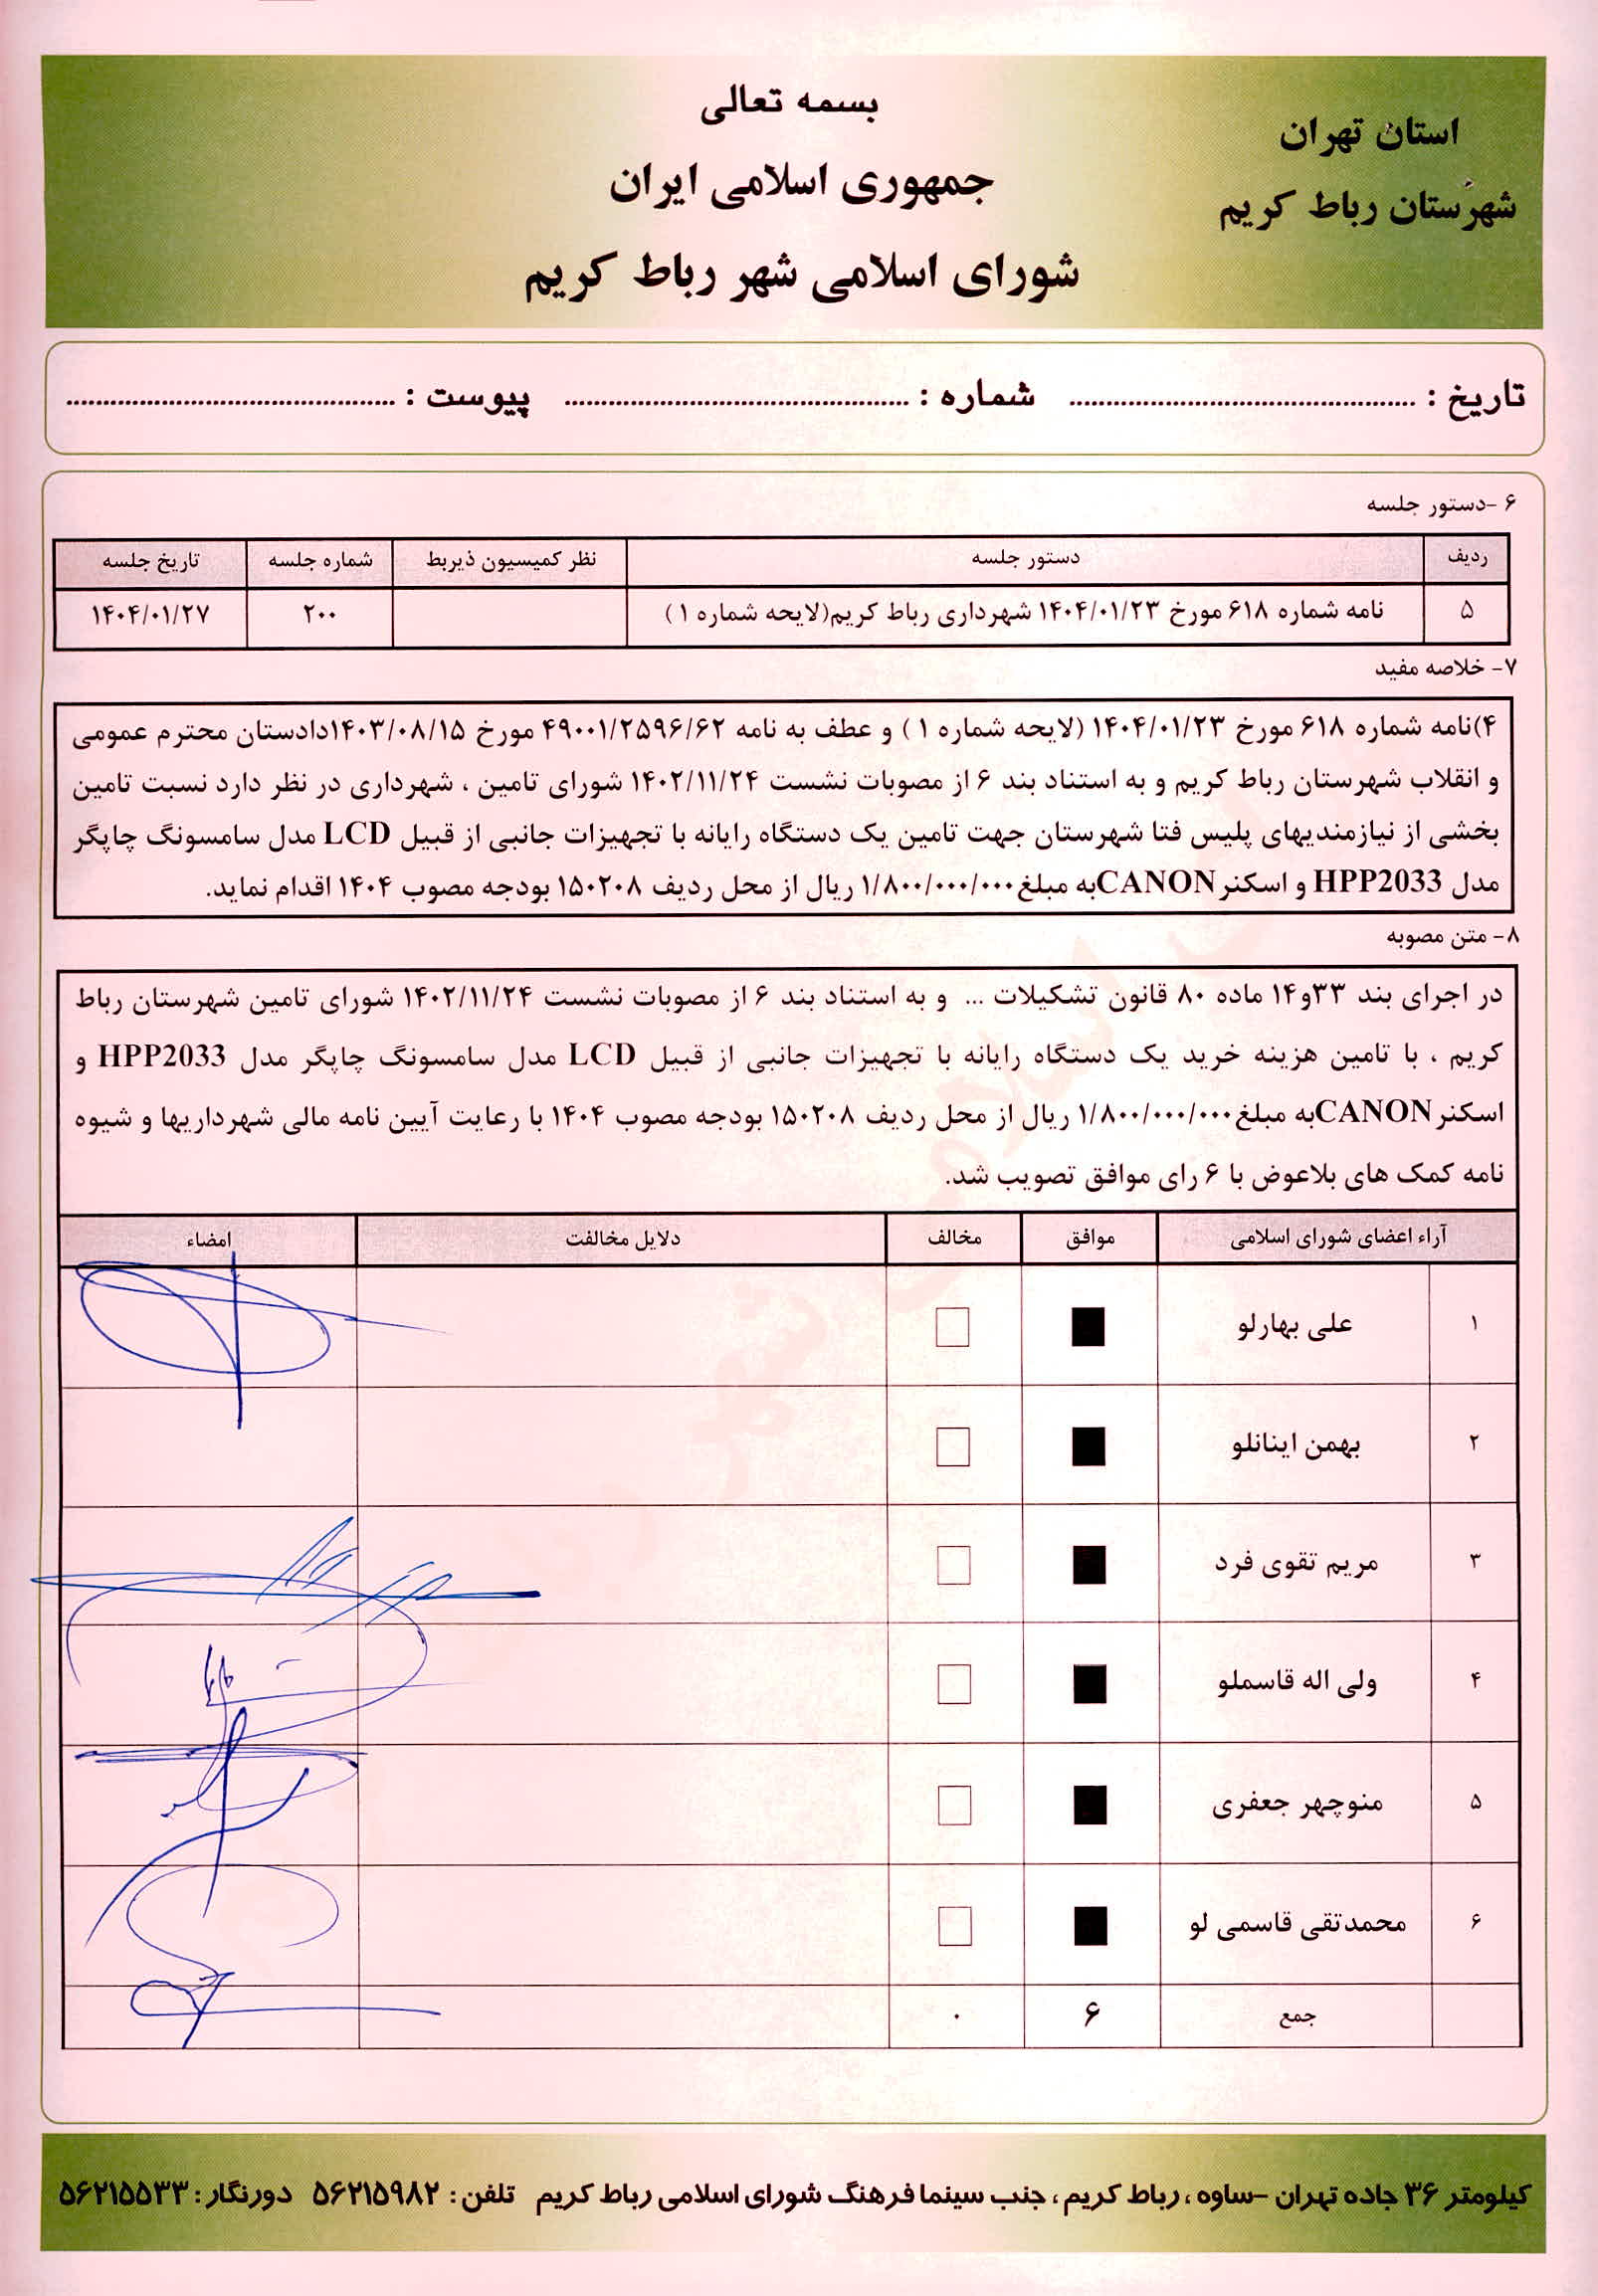 بسمه تعالی
استان تهران
جمهوری اسلامی ایران
شهرستان رباط کریم
شورای اسلامی شهر رباط کریم
تاریخ : ............ شماره : ............ پیوست : ............
۶ -دستور جلسه
ردیف دستور جلسه نظر کمیسیون ذیربط شماره جلسه تاریخ جلسه
۵ نامه شماره ۶۱۸ مورخ ۱۴۰۴/۰۱/۲۳ شهرداری رباط کریم(لایحه شماره ۱ ) ۲۰۰ ۱۴۰۴/۰۱/۲۷
۷- خلاصه مفید
۴)نامه شماره ۶۱۸ مورخ ۱۴۰۴/۰۱/۲۳ (لایحه شماره ۱ ) و عطف به نامه ۴۹۰۰۱/۲۵۹۶/۶۲ مورخ ۱۴۰۳/۰۸/۱۵دادستان محترم عمومی
و انقلاب شهرستان رباط کریم و به استناد بند ۶ از مصوبات نشست ۱۴۰۲/۱۱/۲۴ شورای تامین ، شهرداری در نظر دارد نسبت تامین
بخشی از نیازمندیهای پلیس فتا شهرستان جهت تامین یک دستگاه رایانه با تجهیزات جانبی از قبیل LCD مدل سامسونگ چاپگر
مدل HPP2033 و اسکنر CANONبه مبلغ ۱/۸۰۰/۰۰۰/۰۰۰ ریال از محل ردیف ۱۵۰۲۰۸ بودجه مصوب ۱۴۰۴ اقدام نماید.
۸- متن مصوبه
در اجرای بند ۳۳و۱۴ ماده ۸۰ قانون تشکیلات ... و به استناد بند ۶ از مصوبات نشست ۱۴۰۲/۱۱/۲۴ شورای تامین شهرستان رباط
کریم ، با تامین هزینه خرید یک دستگاه رایانه با تجهیزات جانبی از قبیل LCD مدل سامسونگ چاپگر مدل HPP2033 و
اسکنر CANONبه مبلغ ۱/۸۰۰/۰۰۰/۰۰۰ ریال از محل ردیف ۱۵۰۲۰۸ بودجه مصوب ۱۴۰۴ با رعایت آیین نامه مالی شهرداریها و شیوه
نامه کمک های بلاعوض با ۶ رای موافق تصویب شد.
آراء اعضای شورای اسلامی موافق مخالف دلایل مخالفت امضاء
۱ علی بهارلو ■ □
۲ بهمن اینانلو ■ □
۳ مریم تقوی فرد ■ □
۴ ولی اله قاسملو ■ □
۵ منوچهر جعفری ■ □
۶ محمدتقی قاسمی لو ■ □
جمع ۶ ۰
کیلومتر ۳۶ جاده تهران -ساوه ، رباط کریم ، جنب سینما فرهنگ شورای اسلامی رباط کریم تلفن : ۵۶۲۱۵۹۸۲ دورنگار : ۵۶۲۱۵۵۳۳